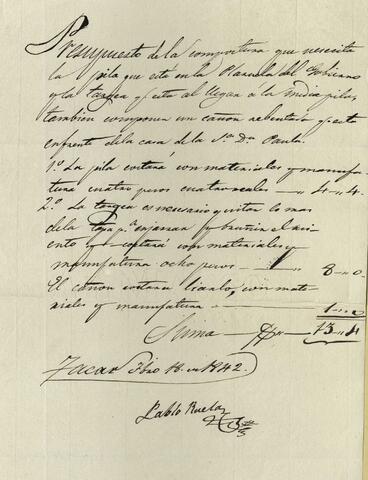 Presupuesto de la compostura que necesita
la pila que está en la Plazuela del Gobierno
y la targea q.e esta al llegar a la misma pila,
tambien componer un cañon rebentado q.e esta
enfrente de la casa de la S.a D.a Paula.
1.o La pila costará con materiales y manufa-
tura cuatro pesos cuatro reales — 4 „ 4.
2.o La targea es necesario quitar lo mas
de la tapa p.a enjarrar y bruñir el
ento y costará con materiales y
manufatura ocho pesos — 8 „ 0
El cañon costara con mate-
riales y manufatura 1 „ 0
Suma — 13 „ 4
Zacat.s 18 de 1842.
Pablo Ruelas